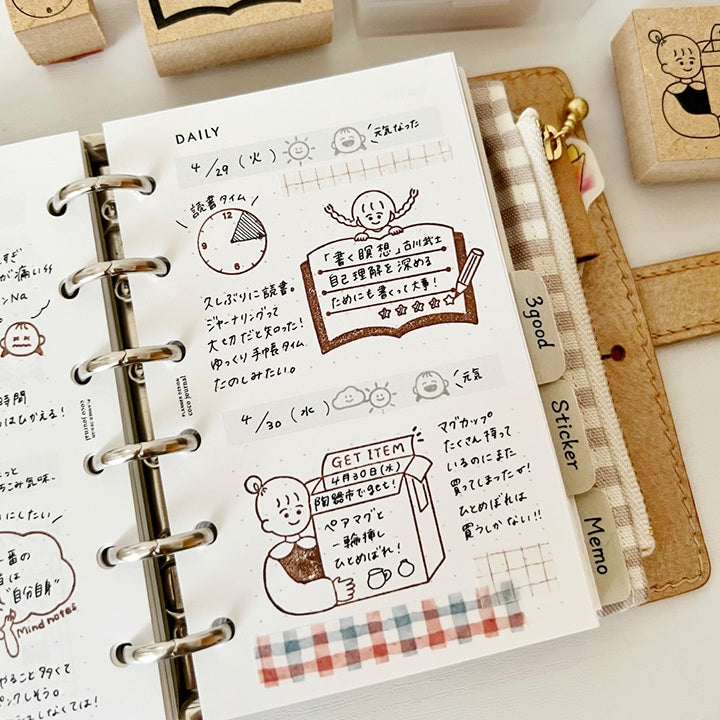 DAILY
4/29 (火)
元気なった
読書タイム
12
3
6
9
「書く瞑想」古川武士
自己理解を深める
ためにも書くって大事!
久しぶりに読書。
ジャーナリングって
大切だと知った!
ゆっくり手帳タイム
たのしみたい。
4/30 (水)
元気
GET ITEM
4月30日(水)
陶器市でget!
ペアマグと
一輪挿し
ひとめぼれ!
マグカップ
たくさん持って
いるのにまた
買ってしまったマ!
ひとめぼれは
買うしかない!!
3good
Sticker
Memo
coco journal
すぎ
が痛い
ンNa
時間
はひかえる!
にしたい
番の
は
"自分自身"
Mind notes
やること多くて